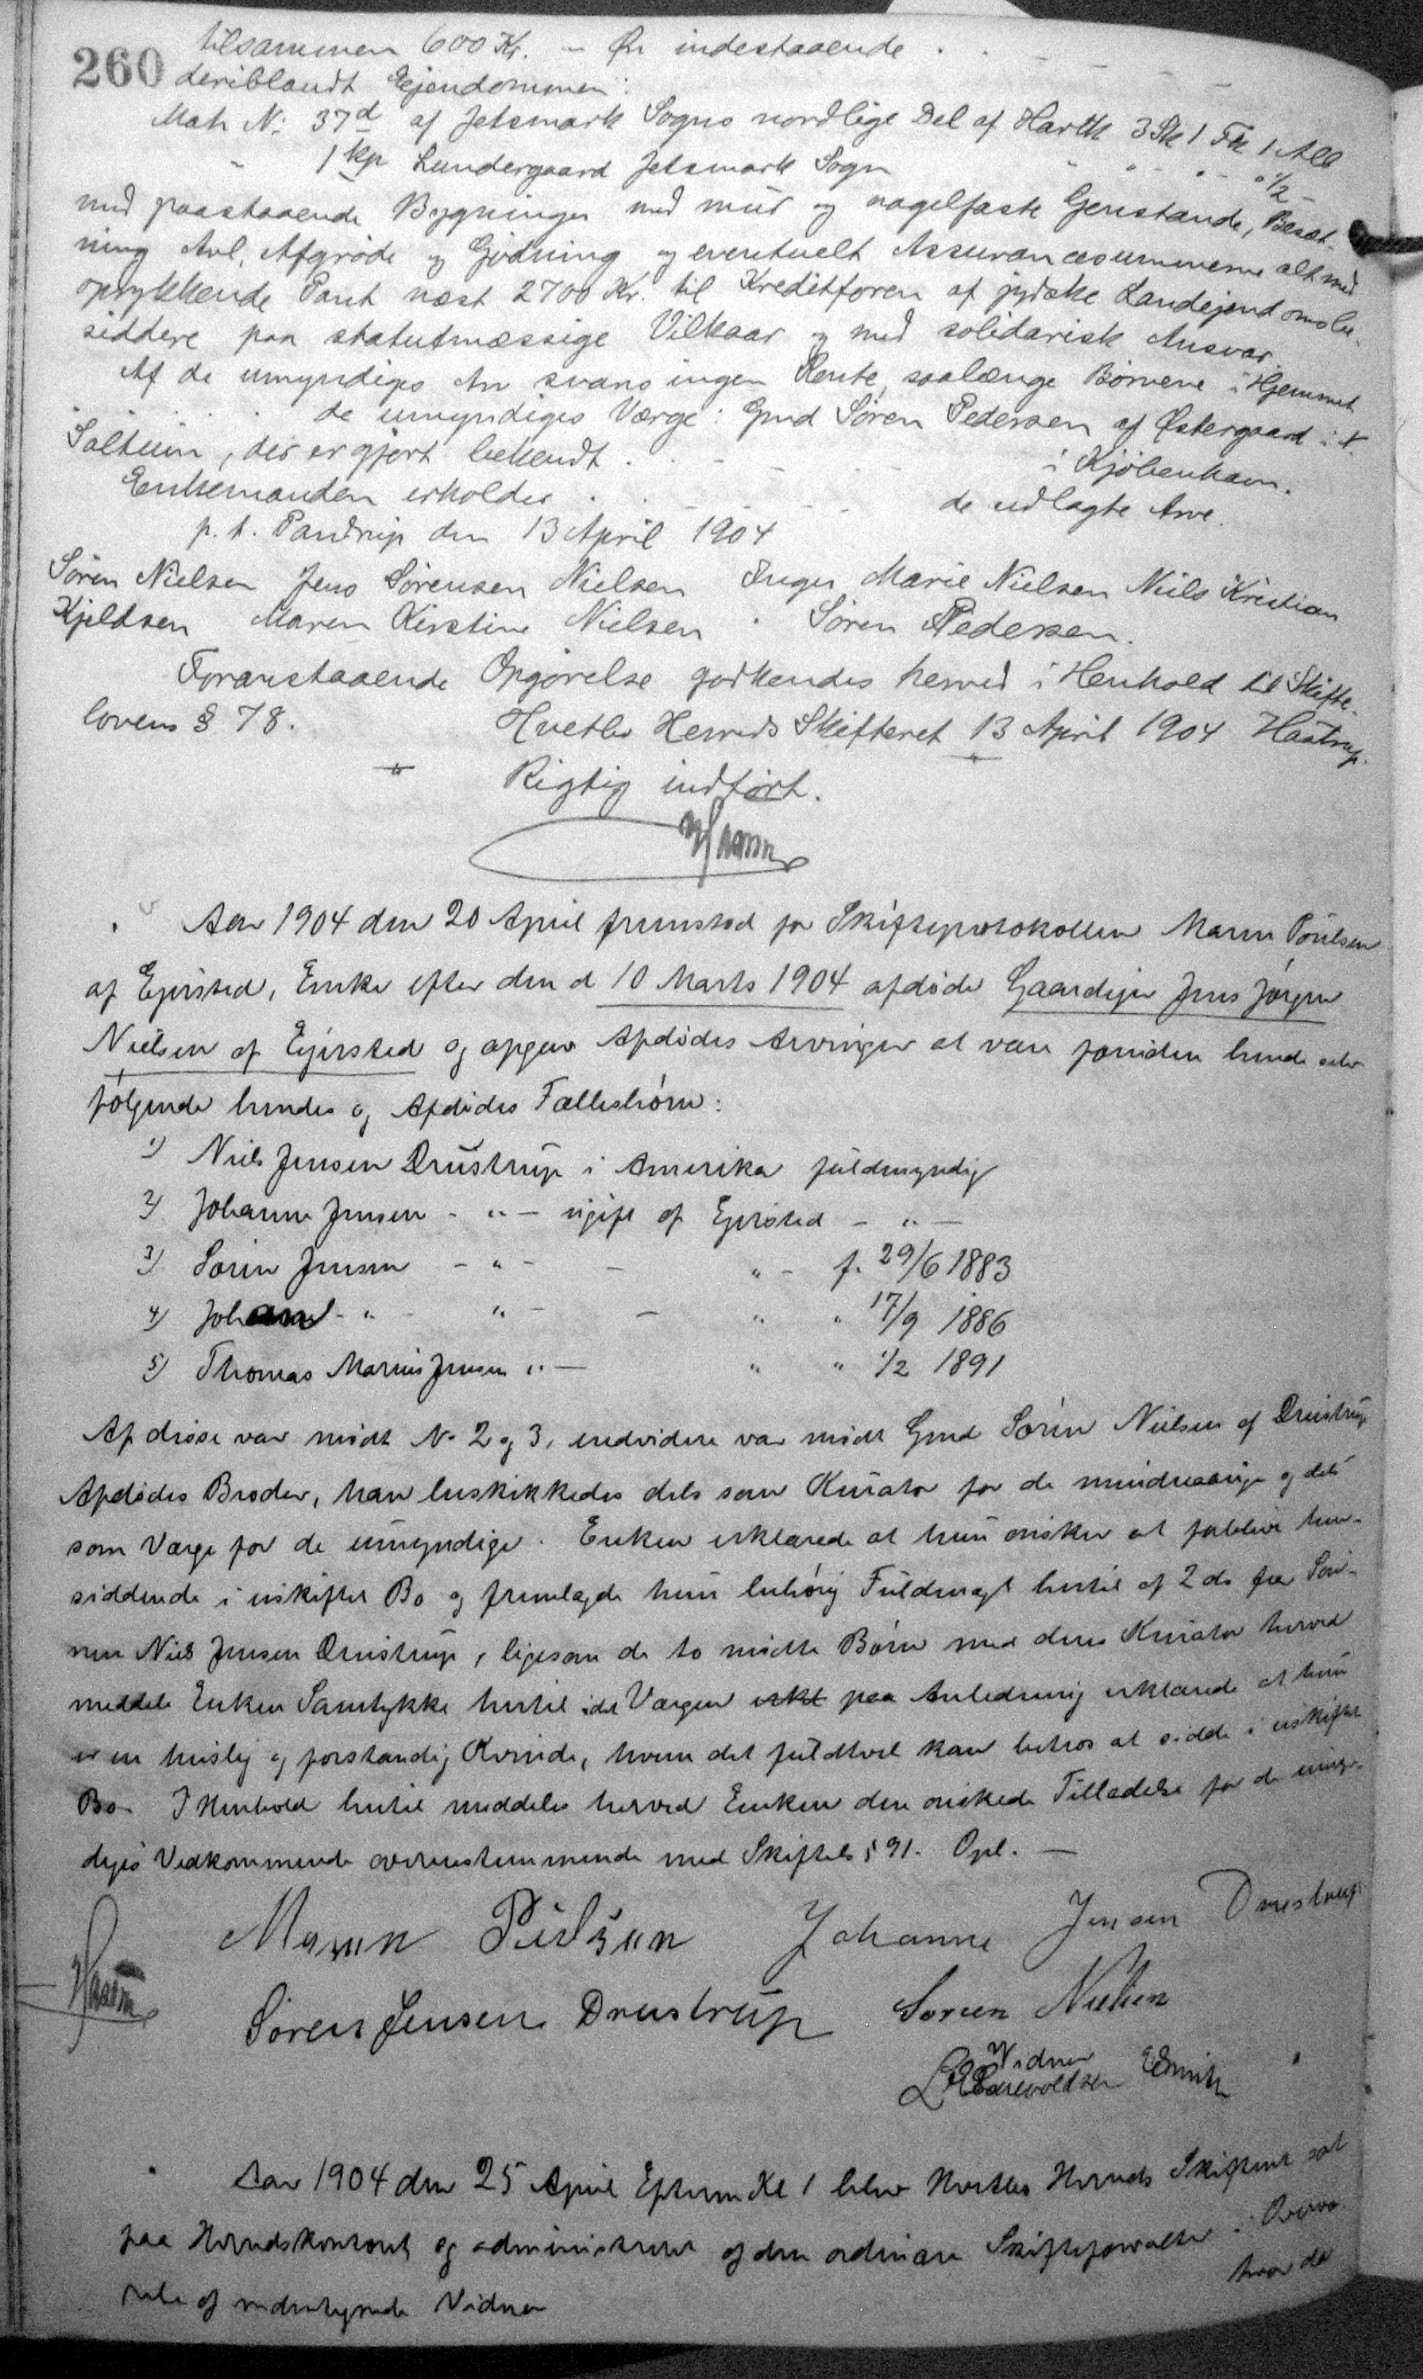 260 tilsammen 600 Kr. - Ør indestaaende . . - - - -
deriblandt Ejendommen:
Matr No 37d af Jetsmark Sogns nordlige Del af Hartk 3 Sk 1 Fk 1 Alb
" 1 kp Lundergaard Jetsmark Sogn " - " - " 1/2 -
med paastaaende Bygninger med mur og nagelfaste Genstande, Besæt-
ning Avl, Afgrøde og Gjødning og eventuelt Assurancesummerne alt med
oprykkende Pant næst 2700 Kr. til Kreditforen af jydske Landejendomsbe-
siddere paa statutmæssige Vilkaar og med solidarisk Ansvar.
Af de umyndiges Arv svares ingen Rente, saalænge Børnene i Hjemmet
. . . de umyndiges Værge: Gmd Søren Pedersen af Østergaard i N.
Saltum, der er gjort bekendt . - - - - i Kjøbenhavn.
Enkemanden erholder . . - - - de udlagte Arve.
p. t. Pandrup den 13 April 1904
Søren Nielsen Jens Sørensen Nielsen Inger Marie Nielsen Niels Kristian
Kjeldsen Maren Kirstine Nielsen . Søren Pedersen.
Foranstaaende Opgørelse godkendes herved i Henhold til Skifte-
lovens § 78. Hvetbo Herreds Skifteret 13 April 1904 Hastrup.
Rigtig indført.
Aar 1904 den 20 April fremstod for Skifteprotokollen Maren Poulsen
af Ejersted, Enke efter den d 10 Marts 1904 afdøde Gaardejer Jens Jørgen
Nielsen af Ejersted og opgav Afdødes Arvinger at være foruden hende selv
følgende hendes og Afdødes Fællesbørn:
1) Niels Jensen Drustrup i Amerika fuldmyndig
2) Johanne Jensen - " - ugift af Ejersted - " -
3) Søren Jensen - " - - " - f. 29/6 1883
4) Johan - " - " - - " " 17/9 1886
5) Thomas Marius Jensen " - " " 1/2 1891
Af disse var mødt No 2 og 3, endvidere var mødt Gmd Søren Nielsen af Drustrup
Afdødes Broder, han beskikkedes dels som Kurator for de mindreaarige og dels
som Værge for de umyndige. Enken erklærede at hun ønsker at forblive hen-
siddende i uskiftet Bo og fremlagde hun behørig Fuldmagt hertil af 2 ds fra Søn-
nen Niels Jensen Drustrup, ligesom de to mødte Børn med deres Kurator herved
meddele Enken Samtykke hertil idet Værgen erkl paa Anledning erklærede at hun
er en huslig og forstandig Kvinde, hvem det fuldtvel kan betros at sidde i uskiftet
Bo. I Henhold hertil meddeles herved Enken den ønskede Tilladelse for de umyn-
diges Vedkommende overensstemmende med Skiftels § 91. Opl. -
Maren Pøulsen Johanne Jensen Drustrup
Søren Jensen Drustrup Søren Nielsen
Vidner
Smith
Aar 1904 den 25 April Efterm Kl 1 blev Hvetbo Herreds Skifteret sat
paa Herredskontoret og administreret af den ordinære Skifteforvalter i Overvæ-
relse af undertegnede Vidner hvor da